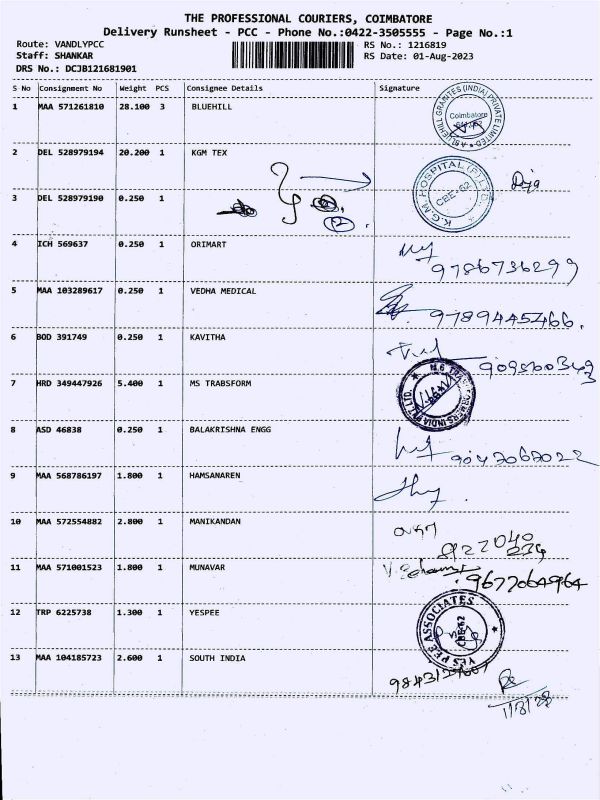 THE PROFESSIONAL COURIERS, COIMBATORE
Delivery Runsheet - PCC - Phone No.:0422-3505555 - Page No.:1
Route: VANDLYPCC RS No.: 1216819
Staff: SHANKAR RS Date: 01-Aug-2023
DRS No.: DCJB121681901
S No Consignment No Weight PCS Consignee Details Signature
1 MAA 571261810 28.100 3 BLUEHILL
ABLUEHILL GRANITES (INDIA) PRIVATE LIMITED Coimbatore
2 DEL 528979194 20.200 1 KGM TEX
K.G.M. HOSPITAL (P) LTD. CBE-62
3 DEL 528979190 0.250 1
12
4 ICH 569637 0.250 1 ORIMART
9786736299
5 MAA 103289617 0.250 1 VEDHA MEDICAL
9789445466.
6 BOD 391749 0.250 1 KAVITHA
7 HRD 349447926 5.400 1 MS TRABSFORM
8 ASD 46838 0.250 1 BALAKRISHNA ENGG
9047067022
9 MAA 568786197 1.800 1 HAMSANAREN
10 MAA 572554882 2.800 1 MANIKANDAN
922040
234
11 MAA 571001523 1.800 1 MUNAVAR
9677064964
12 TRP 6225738 1.300 1 YESPEE
YES PEE ASSOCIATES CBE-62
13 MAA 104185723 2.600 1 SOUTH INDIA